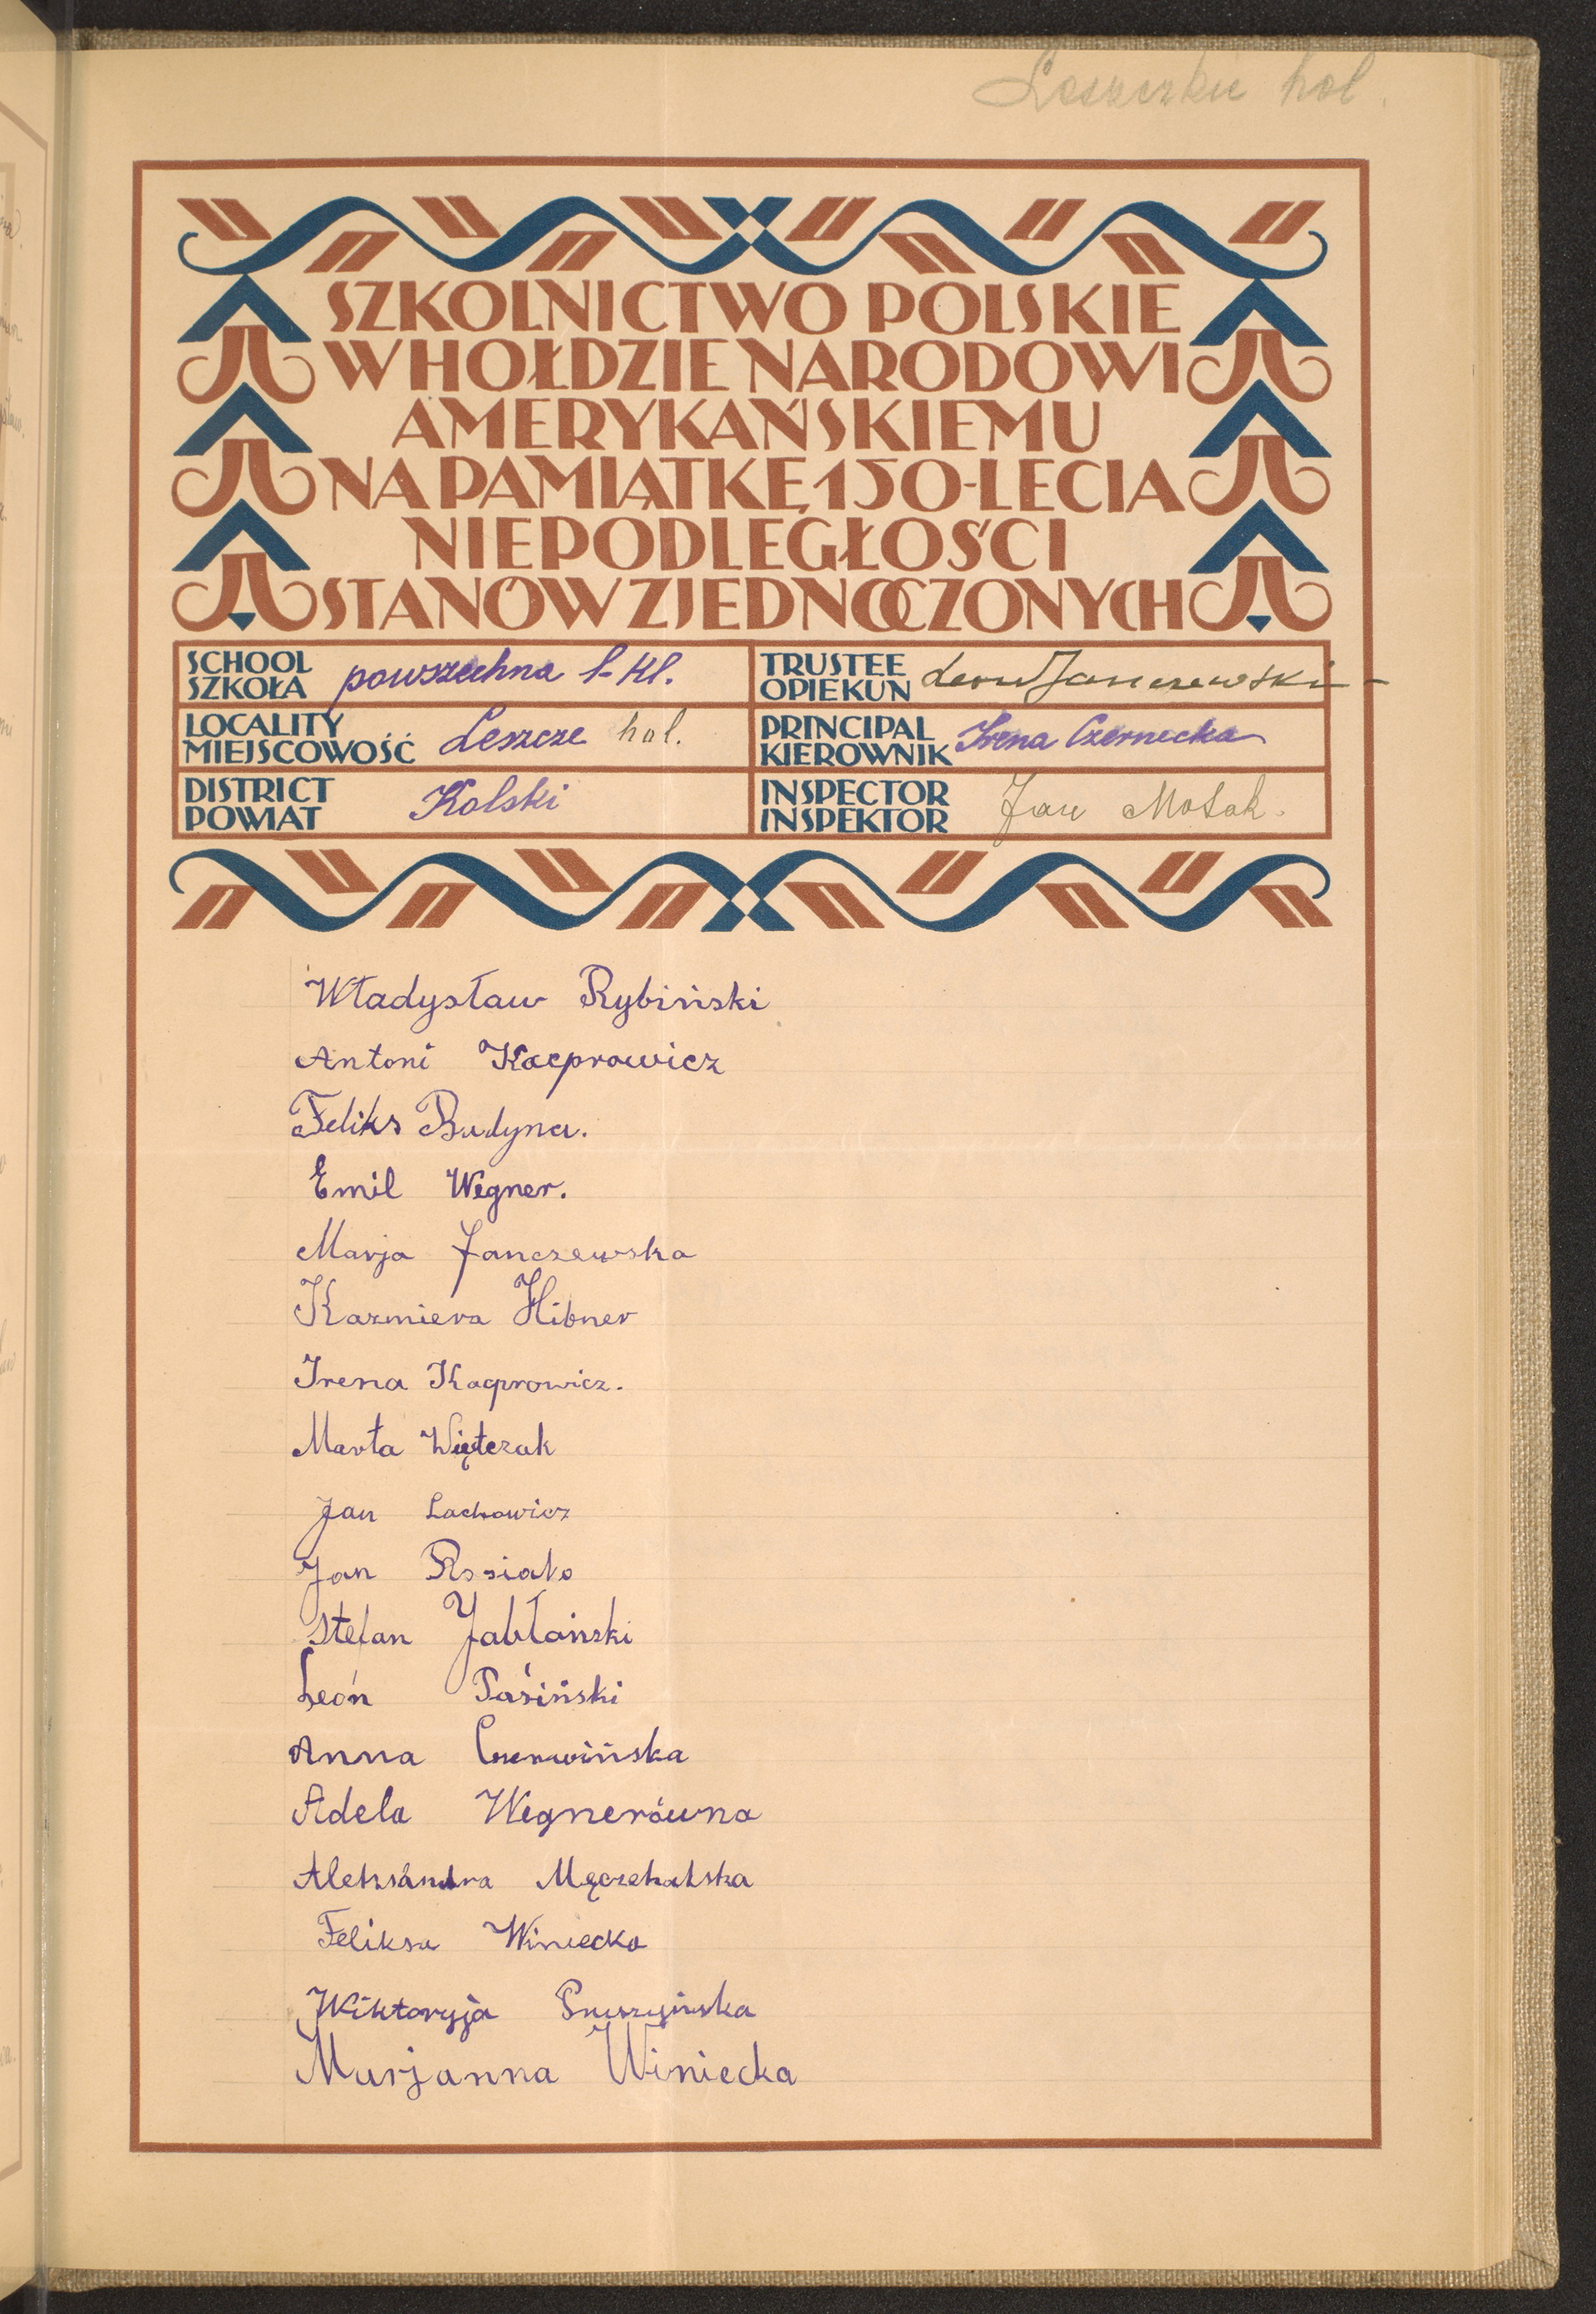 Leszczkie hol.
SZKOLNICTWO POLSKIE
W HOŁDZIE NARODOWI
AMERYKAŃSKIEMU
NA PAMIĄTKĘ 150-LECIA
NIEPODLEGŁOŚCI
STANÓW ZJEDNOCZONYCH
SCHOOL
SZKOŁA
powszechna 1-kl.
TRUSTEE
OPIEKUN
Leon Janczewski
LOCALITY
MIEJSCOWOŚĆ
Leszcze hol.
PRINCIPAL
KIEROWNIK
Irena Czernecka
DISTRICT
POWIAT
Kolski
INSPECTOR
INSPEKTOR
Jan
Władysław Rybiński
Antoni Kacprowicz
Feliks Budyna.
Emil Wegner.
Marja Janczewska
Kazmiera Hibner
Irena Kacprowicz.
Marta Więtczak
Jan Lachowicz
Jan
Stefan Jabłoński
Leon Pasiński
Anna Czerwińska
Adela Wegnerówna
Aleksandra
Feliksa Winiecka
Wiktoryja
Marjanna Winiecka